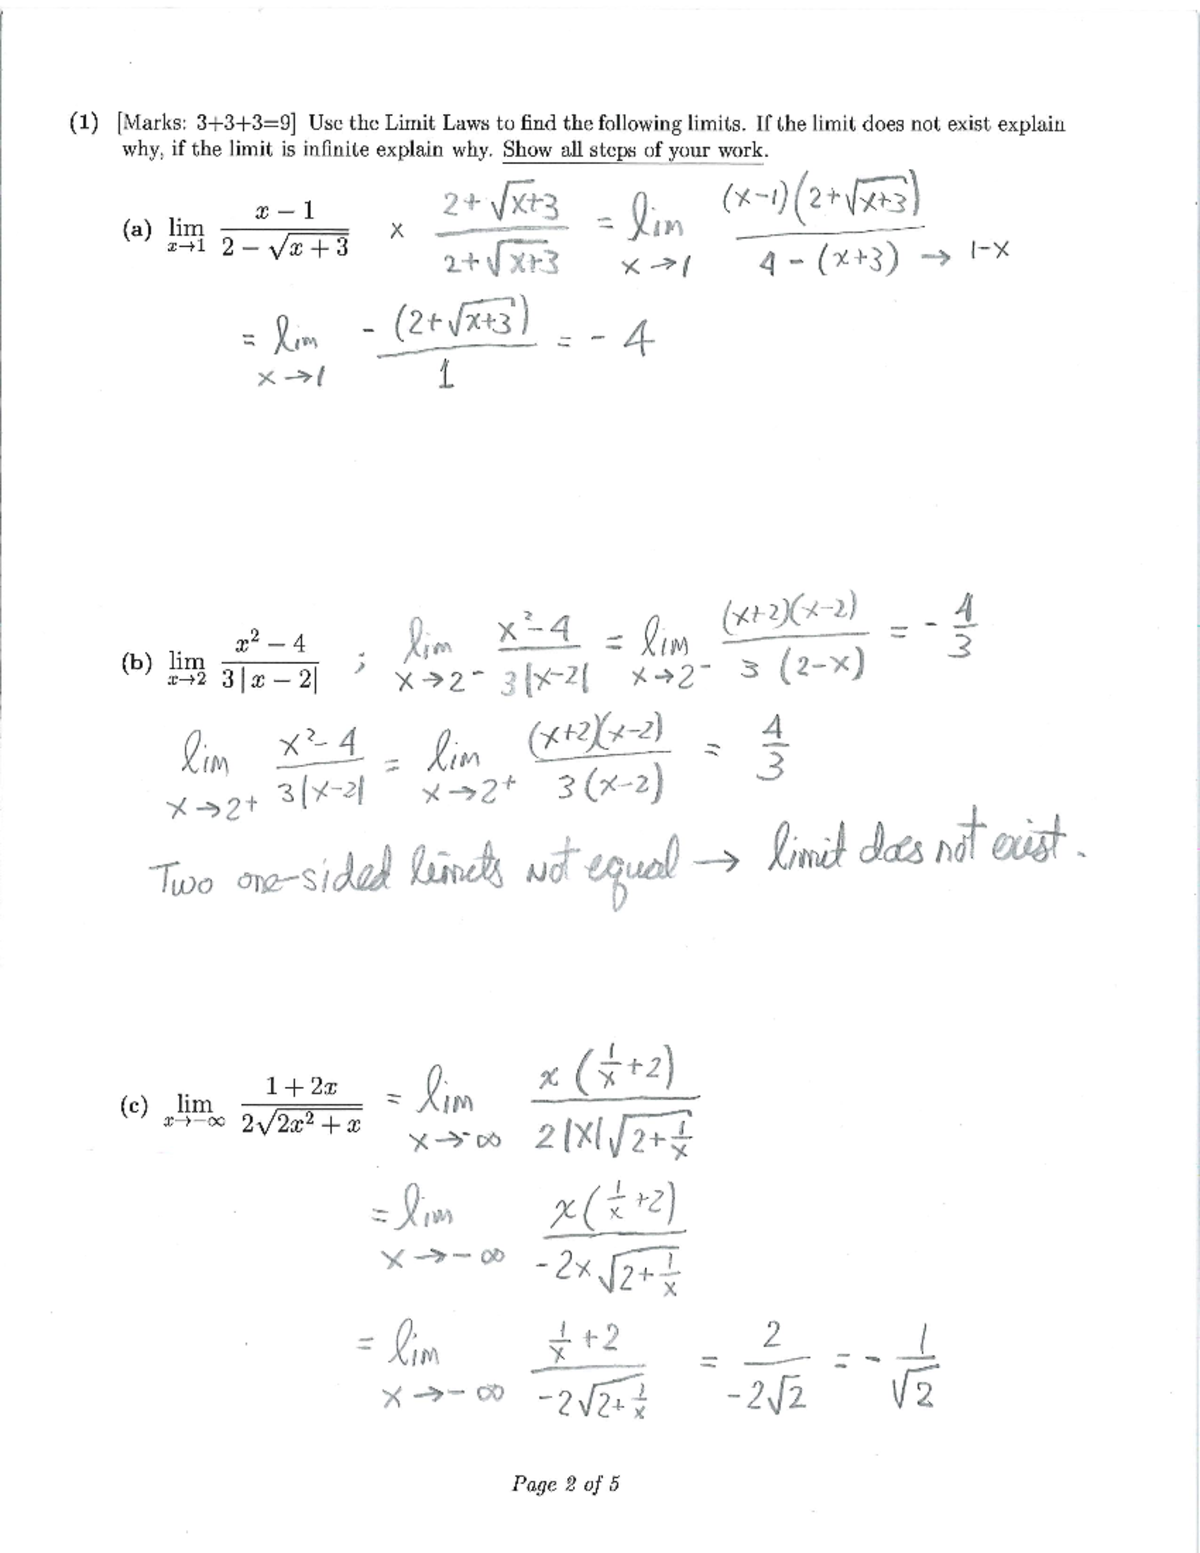 (1) [Marks: 3+3+3=9] Use the Limit Laws to find the following limits. If the limit does not exist explain
why, if the limit is infinite explain why. Show all steps of your work.
(a) lim x→1 (x − 1)/(2 − √(x + 3)) × (2+√(x+3))/(2+√(x+3)) = lim x→1 (x-1)(2+√(x+3))/(4-(x+3)) → 1-x
= lim x→1 -(2+√(x+3))/1 = -4
(b) lim x→2 (x² − 4)/(3|x − 2|) ; lim x→2⁻ (x²-4)/(3|x-2|) = lim x→2⁻ (x+2)(x-2)/(3(2-x)) = -4/3
lim x→2+ (x²-4)/(3|x-2|) = lim x→2+ (x+2)(x-2)/(3(x-2)) = 4/3
Two one-sided limits not equal → limit does not exist.
(c) lim x→−∞ (1 + 2x)/(2√(2x² + x)) = lim x→-∞ x(1/x+2)/(2|x|√(2+1/x))
= lim x→-∞ x(1/x+2)/(-2x√(2+1/x))
= lim x→-∞ (1/x+2)/(-2√(2+1/x)) = 2/(-2√2) = -1/√2
Page 2 of 5